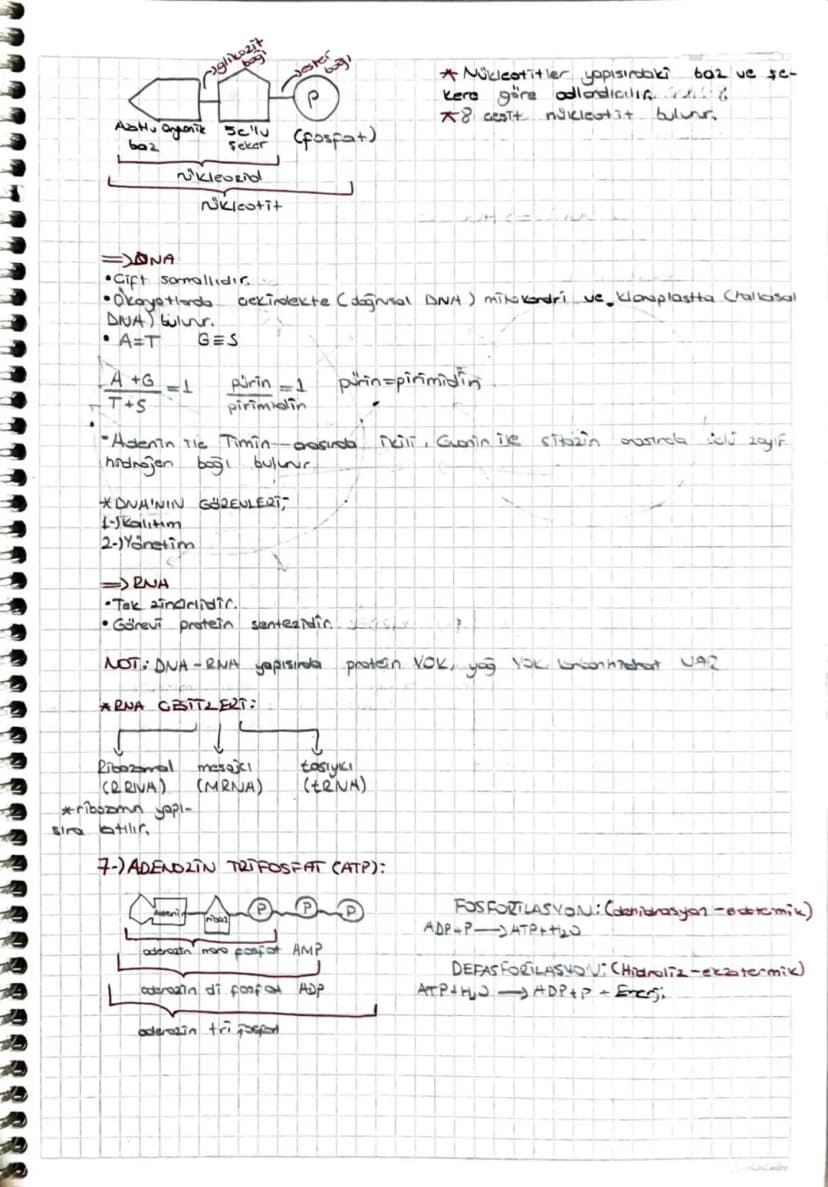 glikozit bağı
ester bağı
P
Azotlu organik baz
5C'lu şeker
(fosfat)
nükleozid
nükleotit
* Nükleotitler yapısındaki baz ve şe-
kere göre adlandırılır.
* 8 çeşit nükleotit bulunur.
=> DNA
• Çift sarmallıdır.
• Ökaryotlarda çekirdekte (doğrusal DNA) mitokondri ve kloroplastta (halkasal
DNA) bulunur.
• A=T G≡S
A+G / T+S = 1 pürin / pirimidin = 1 pürin=pirimidin
• Adenin ile Timin arasında ikili, Guanin ile sitozin arasında üçlü zayıf
hidrojen bağı bulunur.
* DNA'NIN GÖREVLERİ;
1-) Kalıtım
2-) Yönetim
=> RNA
• Tek zincirlidir.
• Görevi protein sentezidir.
NOT: DNA-RNA yapısında protein YOK, yağ YOK karbonhidrat VAR
* RNA ÇEŞİTLERİ:
Ribozomal mesajcı taşıyıcı
(RRNA) (MRNA) (tRNA)
* ribozomun yapı-
sına katılır.
7-) ADENOZİN TRİFOSFAT (ATP):
Adenin riboz P P P
adenozin mono fosfat AMP
adenozin di fosfat ADP
adenozin tri fosfat
FOSFORİLASYON: (dehidrasyon-endotermik)
ADP+P → ATP+H2O
DEFASFORİLASYON: (Hidroliz-ekzotermik)
ATP+H2O → ADP+P + Enerji